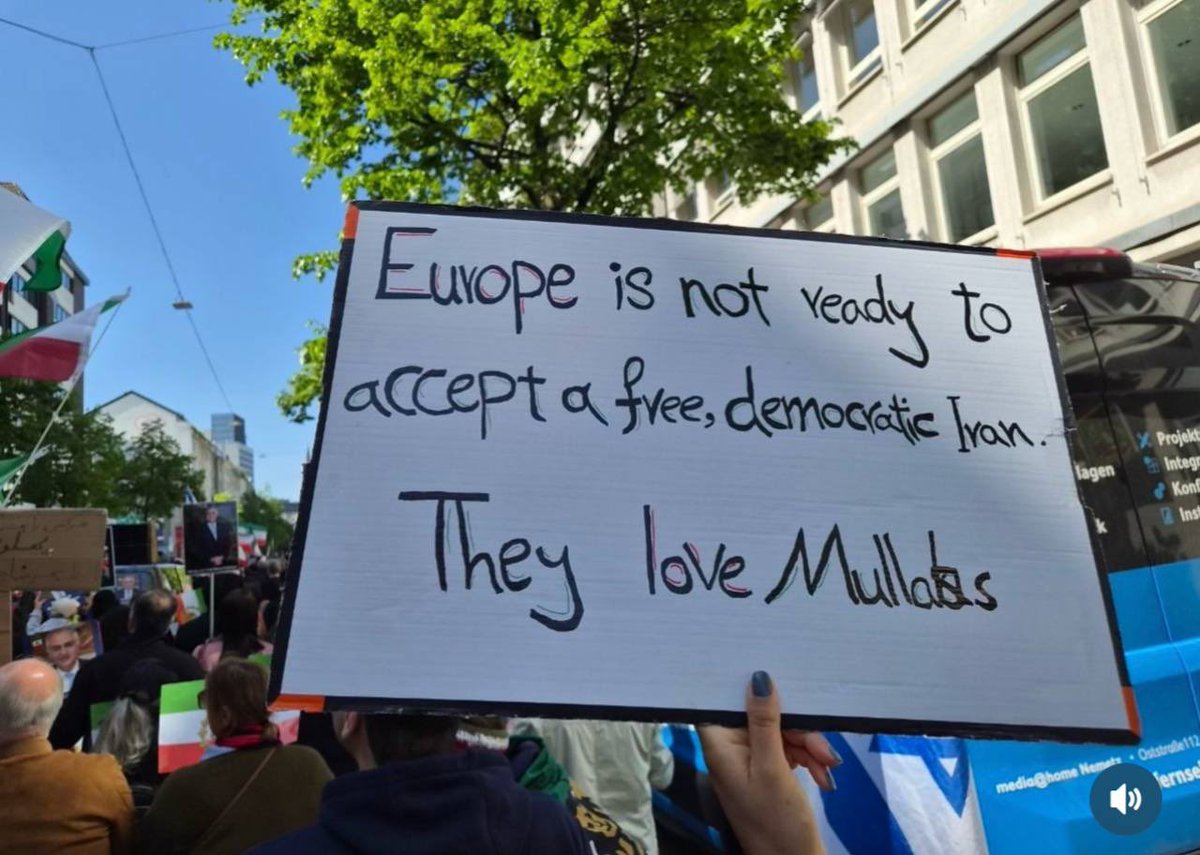 Europe is not ready to
accept a free, democratic Iran.
They love Mullahs
lagen
k
Projekt
Integr
Konf
Inst
media@home Nemetz • Oststraße 112
ernse